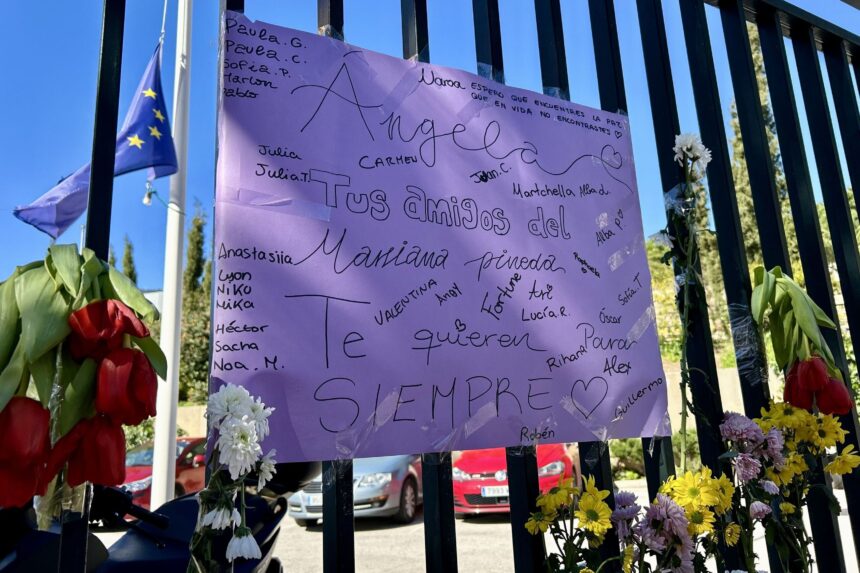 Paula.G.
Paula.C.
Sofia.P.
Marlon
Pablo
Naroa ESPERO QUE ENCUENTRES LA PAZ
QUE EN VIDA NO ENCONTRASTES
Ángela
Julia
Julia.T.
CARMEN
Juan.C.
Martchella Alba d.
Tus amigos del
Alba P.
Mariana pineda
Anastasiia
Lyon
NiKU
Mika
Héctor
Sacha
Noa.M.
VALENTINA
Andy
Fortune
Ari
Lucía.R.
Sofía.T
Óscar
Te quieren Para
Rihana
Alex
SIEMPRE
Guillermo
Rubén